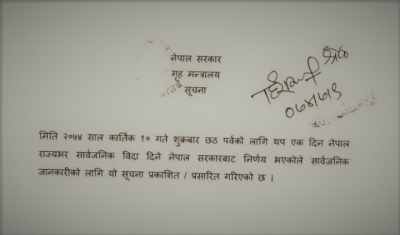 नेपाल सरकार
गृह मन्त्रालय
सूचना
मिति २०७४ साल कार्तिक १० गते शुक्रबार छठ पर्वको लागि थप एक दिन नेपाल
राज्यभर सार्वजनिक विदा दिने नेपाल सरकारबाट निर्णय भएकोले सार्वजनिक
जानकारीको लागि यो सूचना प्रकाशित / प्रसारित गरिएको छ ।